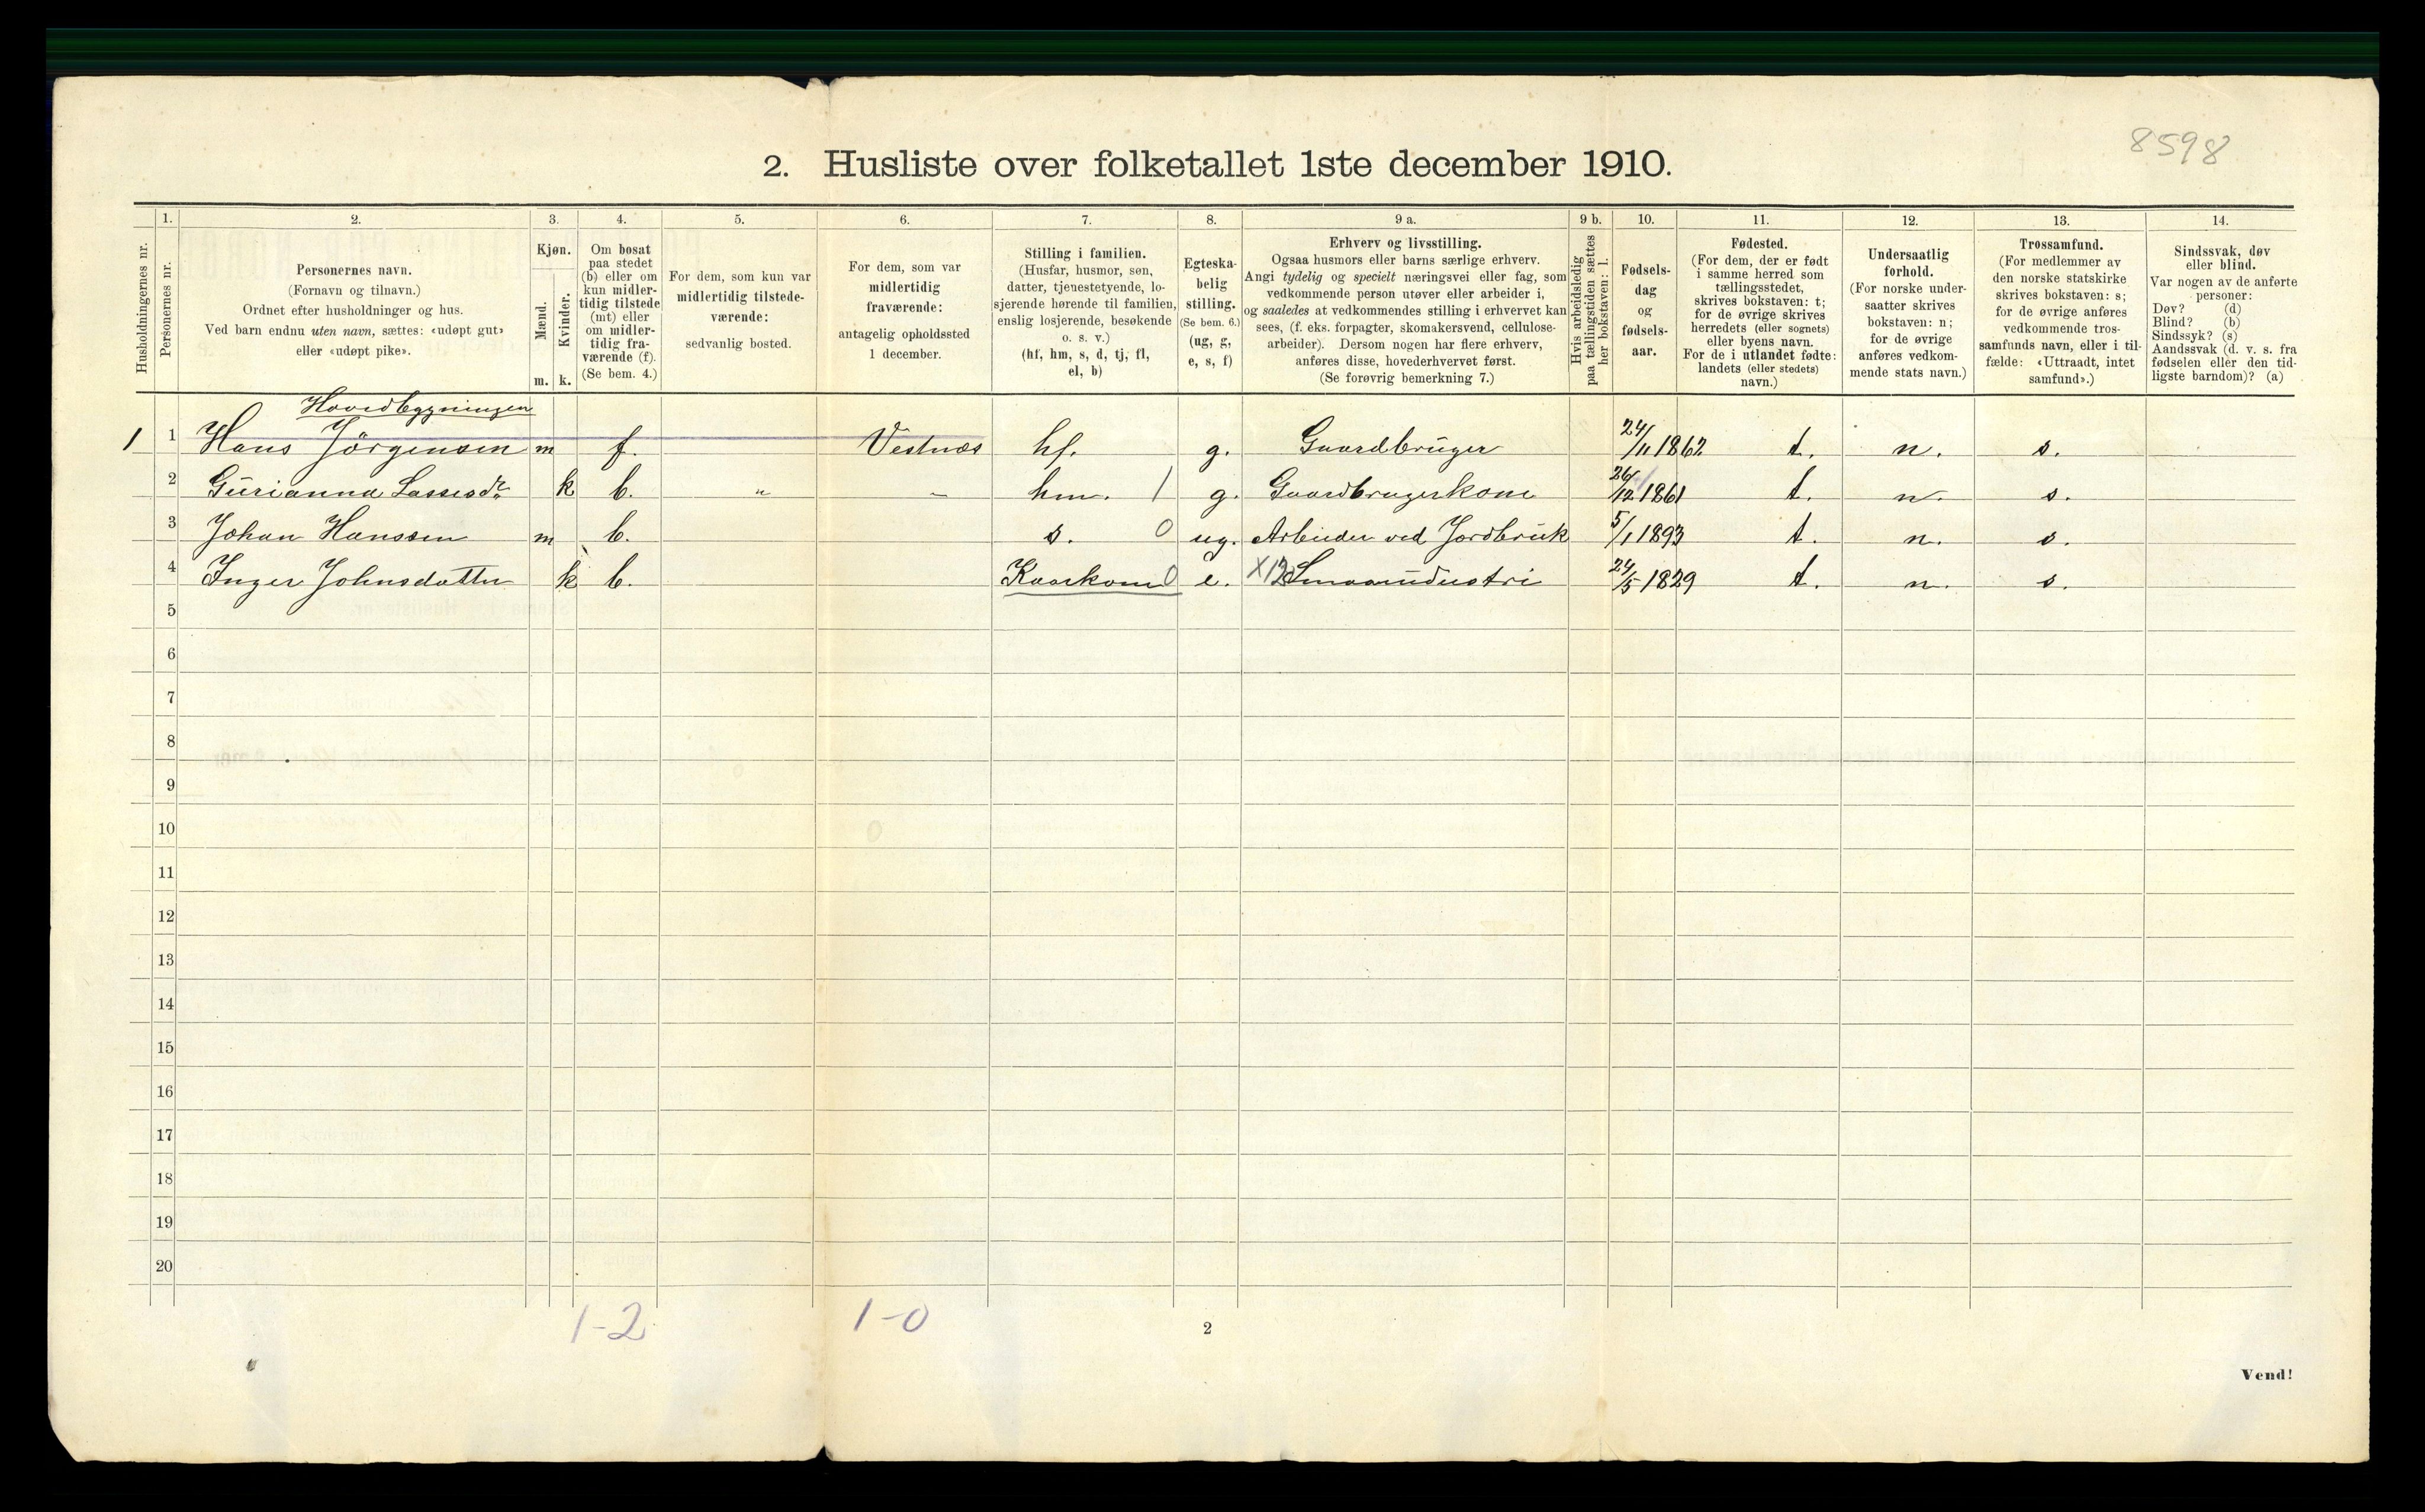 8598
2. Husliste over folketallet 1ste december 1910.
Husholdningernes nr.
1.
Personernes nr.
2.
Personernes navn.
(Fornavn og tilnavn.)
Ordnet efter husholdninger og hus.
Ved barn endnu uten navn, sættes: «udøpt gut»
eller «udøpt pike».
3.
Kjøn.
Mænd.
Kvinder.
m. k.
4.
Om bosat
paa stedet
(b) eller om
kun midler-
tidig tilstede
(mt) eller
om midler-
tidig fra-
værende (f).
(Se bem. 4.)
5.
For dem, som kun var
midlertidig tilstede-
værende:
sedvanlig bosted.
6.
For dem, som var
midlertidig
fraværende:
antagelig opholdssted
1 december.
7.
Stilling i familien.
(Husfar, husmor, søn,
datter, tjenestetyende, lo-
sjerende hørende til familien,
enslig losjerende, besøkende
o. s. v.)
(hf, hm, s, d, tj, fl,
el, b)
8.
Egteska-
belig
stilling.
(Se bem. 6.)
(ug, g,
e, s, f)
9 a.
Erhverv og livsstilling.
Ogsaa husmors eller barns særlige erhverv.
Angi tydelig og specielt næringsvei eller fag, som
vedkommende person utøver eller arbeider i,
og saaledes at vedkommendes stilling i erhvervet kan
sees, (f. eks. forpagter, skomakersvend, cellulose-
arbeider). Dersom nogen har flere erhverv,
anføres disse, hovederhvervet først.
(Se forøvrig bemerkning 7.)
9 b.
Hvis arbeidsledig
paa tællingstiden sættes
her bokstaven: l.
10.
Fødsels-
dag
og
fødsels-
aar.
11.
Fødested.
(For dem, der er født
i samme herred som
tællingsstedet,
skrives bokstaven: t;
for de øvrige skrives
herredets (eller sognets)
eller byens navn.
For de i utlandet fødte:
landets (eller stedets)
navn.)
12.
Undersaatlig
forhold.
(For norske under-
saatter skrives
bokstaven: n;
for de øvrige
anføres vedkom-
mende stats navn.)
13.
Trossamfund.
(For medlemmer av
den norske statskirke
skrives bokstaven: s;
for de øvrige anføres
vedkommende tros-
samfunds navn, eller i til-
fælde: «Uttraadt, intet
samfund».)
14.
Sindssvak, døv
eller blind.
Var nogen av de anførte
personer:
Døv? (d)
Blind? (b)
Sindssyk? (s)
Aandssvak (d. v. s. fra
fødselen eller den tid-
ligste barndom)? (a)
Hovedbygningen
1 1 Hans Jörgensen m f. Vestnes hf. g. Gaardbruger 24/11 1862 t. n. s.
2 Gurianna Lassesdr k b. " - hm. 1 g. Gaardbrugerkone 26/12 1861 t. n. s.
3 Johan Hanssen m b. s. 0 ug. Arbeider ved Jordbruk 5/1 1893 t. n. s.
4 Inger Johnsdatter k b. Kaarkone 0 e. X12 Smaaindustri 24/5 1829 t. n. s.
5
6
7
8
9
10
11
12
13
14
15
16
17
18
19
20
1-2 1-0
2
Vend!